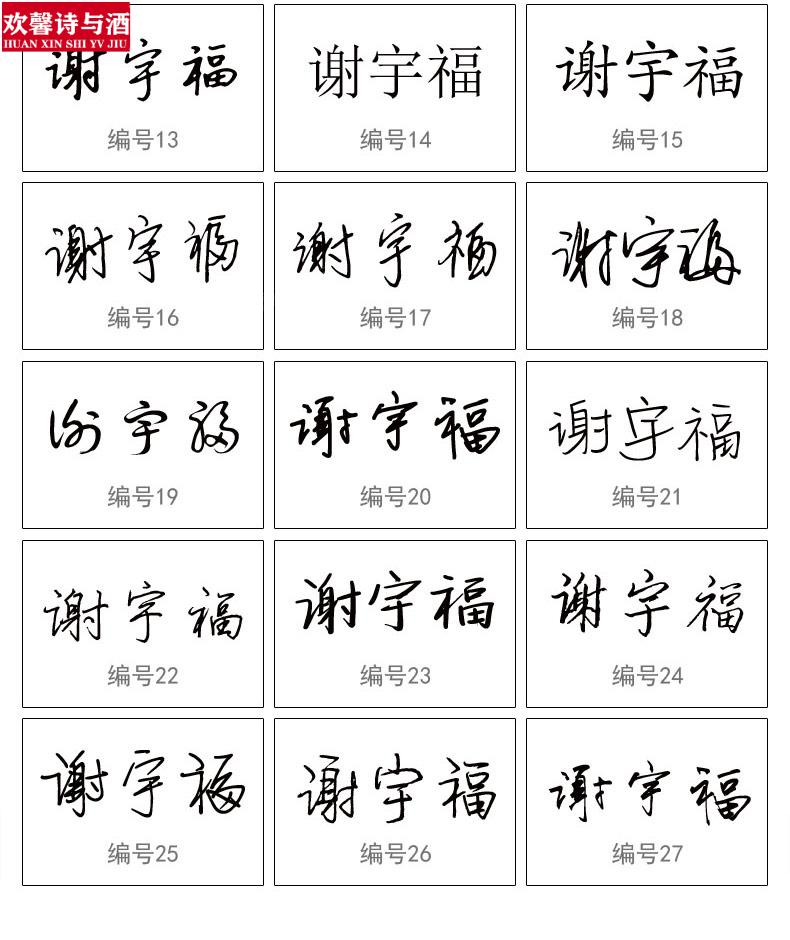 欢馨诗与酒
HUAN XIN SHI YV JIU
谢宇福
编号13
谢宇福
编号14
谢宇福
编号15
谢宇福
编号16
谢宇福
编号17
谢宇福
编号18
谢宇福
编号19
谢宇福
编号20
谢宇福
编号21
谢宇福
编号22
谢宇福
编号23
谢宇福
编号24
谢宇福
编号25
谢宇福
编号26
谢宇福
编号27